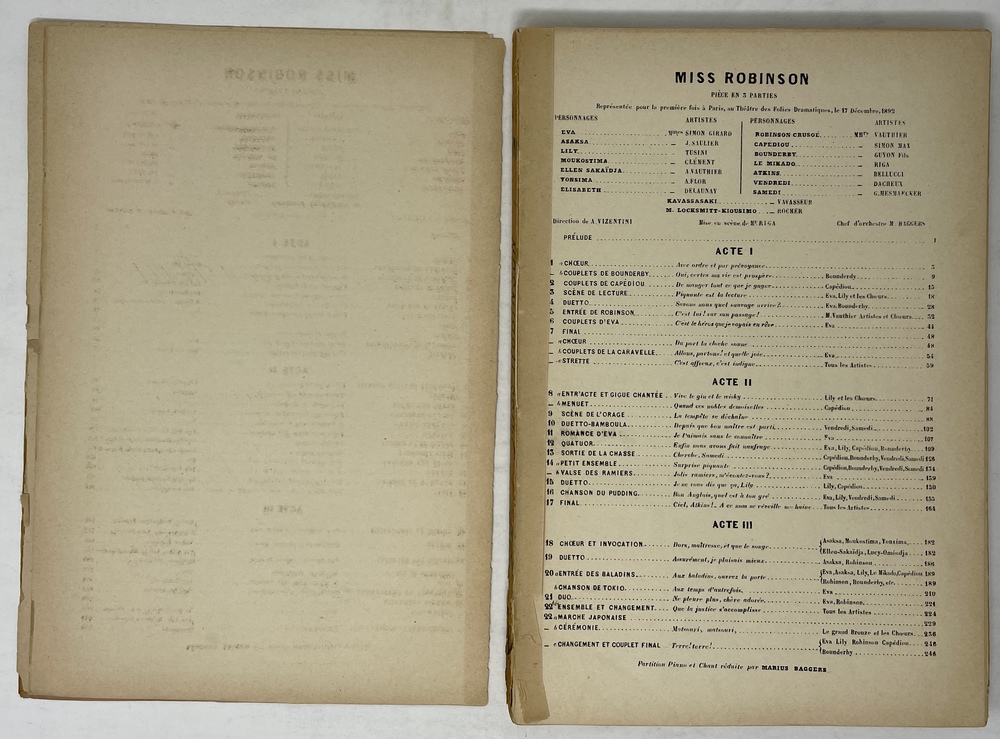 MISS ROBINSON
PIÈCE EN 3 PARTIES
Représentée pour la première fois à Paris, au Théâtre des Folies Dramatiques, le 17 Décembre, 1892
PERSONNAGES ARTISTES PERSONNAGES ARTISTES
EVA Mmes SIMON GIRARD ROBINSON CRUSOÉ MMrs VAUTHIER
ASAKSA J. SAULIER CAPEDIOU SIMON MAX
LILY TUSINI BOUNDERBY GUYON Fils
MOUKOSTIMA CLÉMENT LE MIKADO RIGA
ELLEN SAKAÏDJA A.VAUTHIER ATKINS BELLUCCI
YONSIMA A.FLOR VENDREDI DACHEUX
ELISABETH DELAUNAY SAMEDI G.MESMAECKER
KAVASSASAKI VAVASSEUR
M. LOCKSMITT-KIOUSIMO ROCHER
Direction de A.VIZENTINI Mise en scène de Mr RIGA Chef d'orchestre M. BAGGERS
PRÉLUDE 1
ACTE I
1 a CHŒUR Avec ordre et par prévoyance 5
b COUPLETS DE BOUNDERBY Oui, certes ma vie est prospère Bounderby 9
2 COUPLETS DE CAPÉDIOU De manger tout ce que je gagne Capédiou 15
3 SCÈNE DE LECTURE Piquante est la lecture Eva, Lily et les Chœurs 18
4 DUETTO Serons nous quel sauvage arrive? Eva, Bounderby 28
5 ENTRÉE DE ROBINSON C'est lui! sur son passage! M.Vauthier Artistes et Chœurs 32
6 COUPLETS D'EVA C'est le héros que je voyais en rêve Eva 44
7 FINAL 48
a CHŒUR Du port la cloche sonne 48
b COUPLETS DE LA CARAVELLE Allons, partons! et quelle joie Eva 54
c STRETTE C'est affreux, c'est indigne Tous les Artistes 59
ACTE II
8 a ENTR'ACTE ET GIGUE CHANTÉE Vive le gin et le wisky Lily et les Chœurs 71
b MENUET Quand ces nobles demoiselles Capédiou 84
9 SCÈNE DE L'ORAGE La tempête se déchaîne 88
10 DUETTO-BAMBOULA Depuis que bon maître est parti Vendredi, Samedi 102
11 ROMANCE D'EVA Je l'aimais sans le connaître Eva 107
12 QUATUOR Enfin nous avons fait naufrage Eva, Lily, Capédiou, Bounderby 109
13 SORTIE DE LA CHASSE Cherche, Samedi Capédiou, Bounderby, Vendredi, Samedi 126
14 a PETIT ENSEMBLE Surprise piquante Capédiou, Bounderby, Vendredi, Samedi 134
b VALSE DES RAMIERS Jolis ramiers, m'écoutez-vous? Eva 139
15 DUETTO Je ne vous dis que ça, Lily Lily, Capédiou 150
16 CHANSON DU PUDDING Bon Anglais, quel est à ton gré Eva, Lily, Vendredi, Samedi 155
17 FINAL Ciel, Atkins! Tous les Artistes 164
ACTE III
18 CHŒUR ET INVOCATION Dors, maîtresse, et que le songe Asaksa, Moukostima, Yonsima, 182
Ellen-Sakaïdja, 182
19 DUETTO Assurément, je plaisais mieux Asaksa, Robinson 186
20 a ENTRÉE DES BALADINS Aux baladins, ouvrez la porte Eva, Asaksa, Lily, Le Mikado, Capédiou 189
Robinson, Bounderby, etc. 189
b CHANSON DE TOKIO Aux temps d'autrefois Eva 210
21 DUO Ne pleure plus, chère adorée Eva, Robinson 221
22 bis ENSEMBLE ET CHANGEMENT Que la justice s'accomplisse Tous les Artistes 224
22 a MARCHE JAPONAISE 229
b CÉRÉMONIE Matsouri, matsouri, Le grand Bronze et les Chœurs 236
c CHANGEMENT ET COUPLET FINAL Terre! terre! Eva Lily Robinson Capédiou 246
Bounderby 246
Partition Piano et Chant réduite par MARIUS BAGGERS